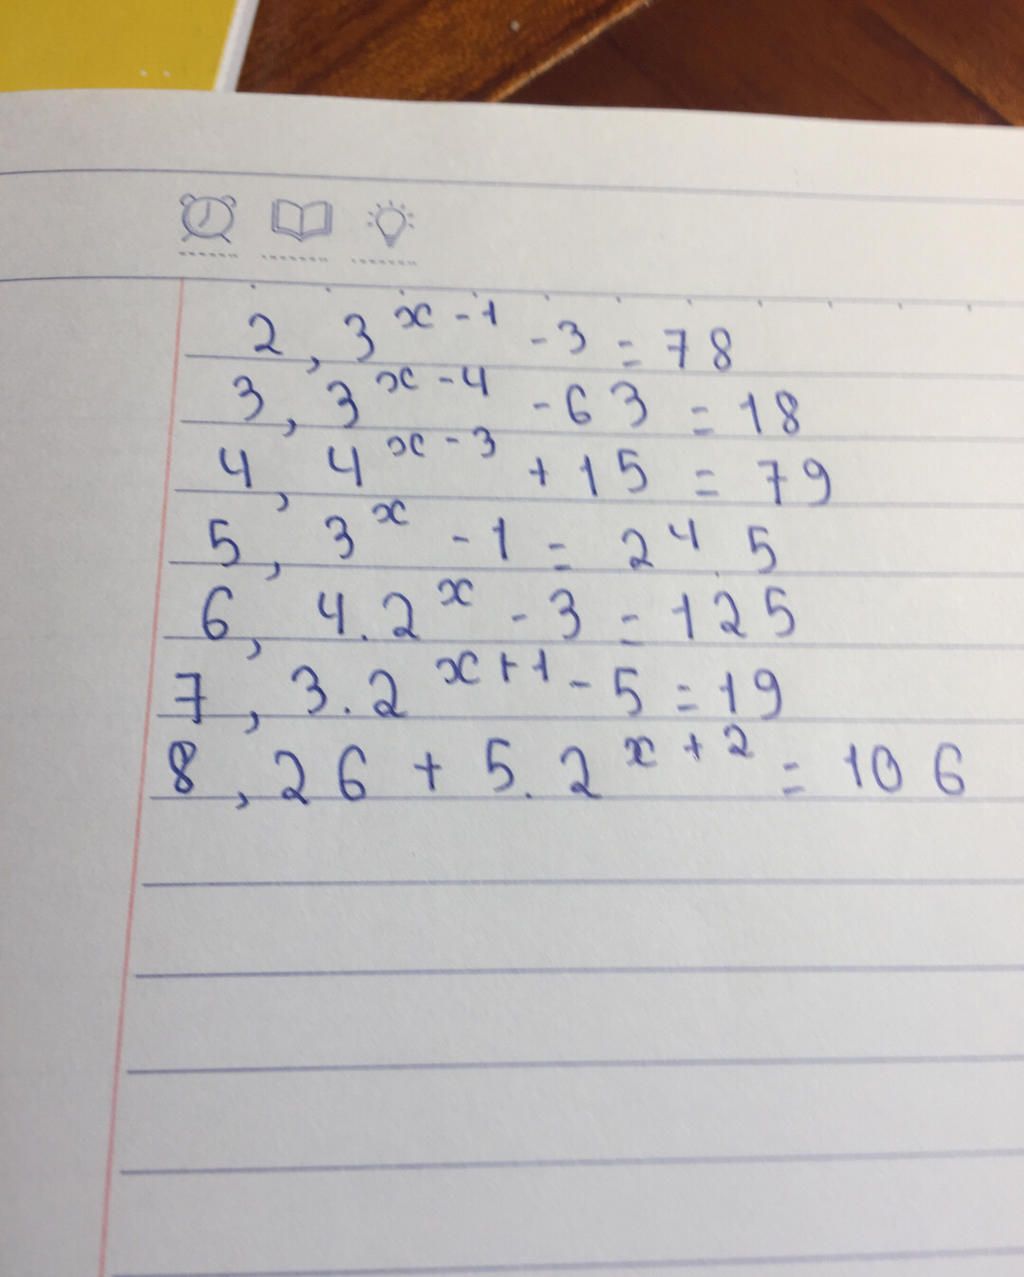 2, 3^{x-1} - 3 = 78
3, 3^{x-4} - 63 = 18
4, 4^{x-3} + 15 = 79
5, 3^{x} - 1 = 2^{4}.5
6, 4.2^{x} - 3 = 125
7, 3.2^{x+1} - 5 = 19
8, 26 + 5.2^{x+2} = 106